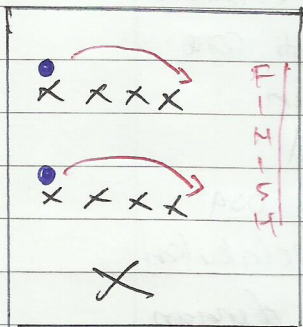 X X X X
X X X X
X
FINISH